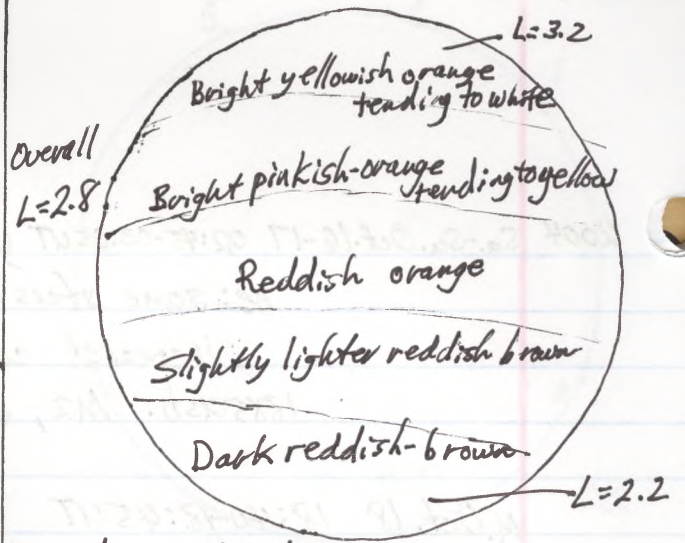 L=3.2
Bright yellowish orange
tending to white
Overall
L=2.8
Bright pinkish-orange
tending to yellow
Reddish orange
Slightly lighter reddish brown
Dark reddish-brown
L=2.2